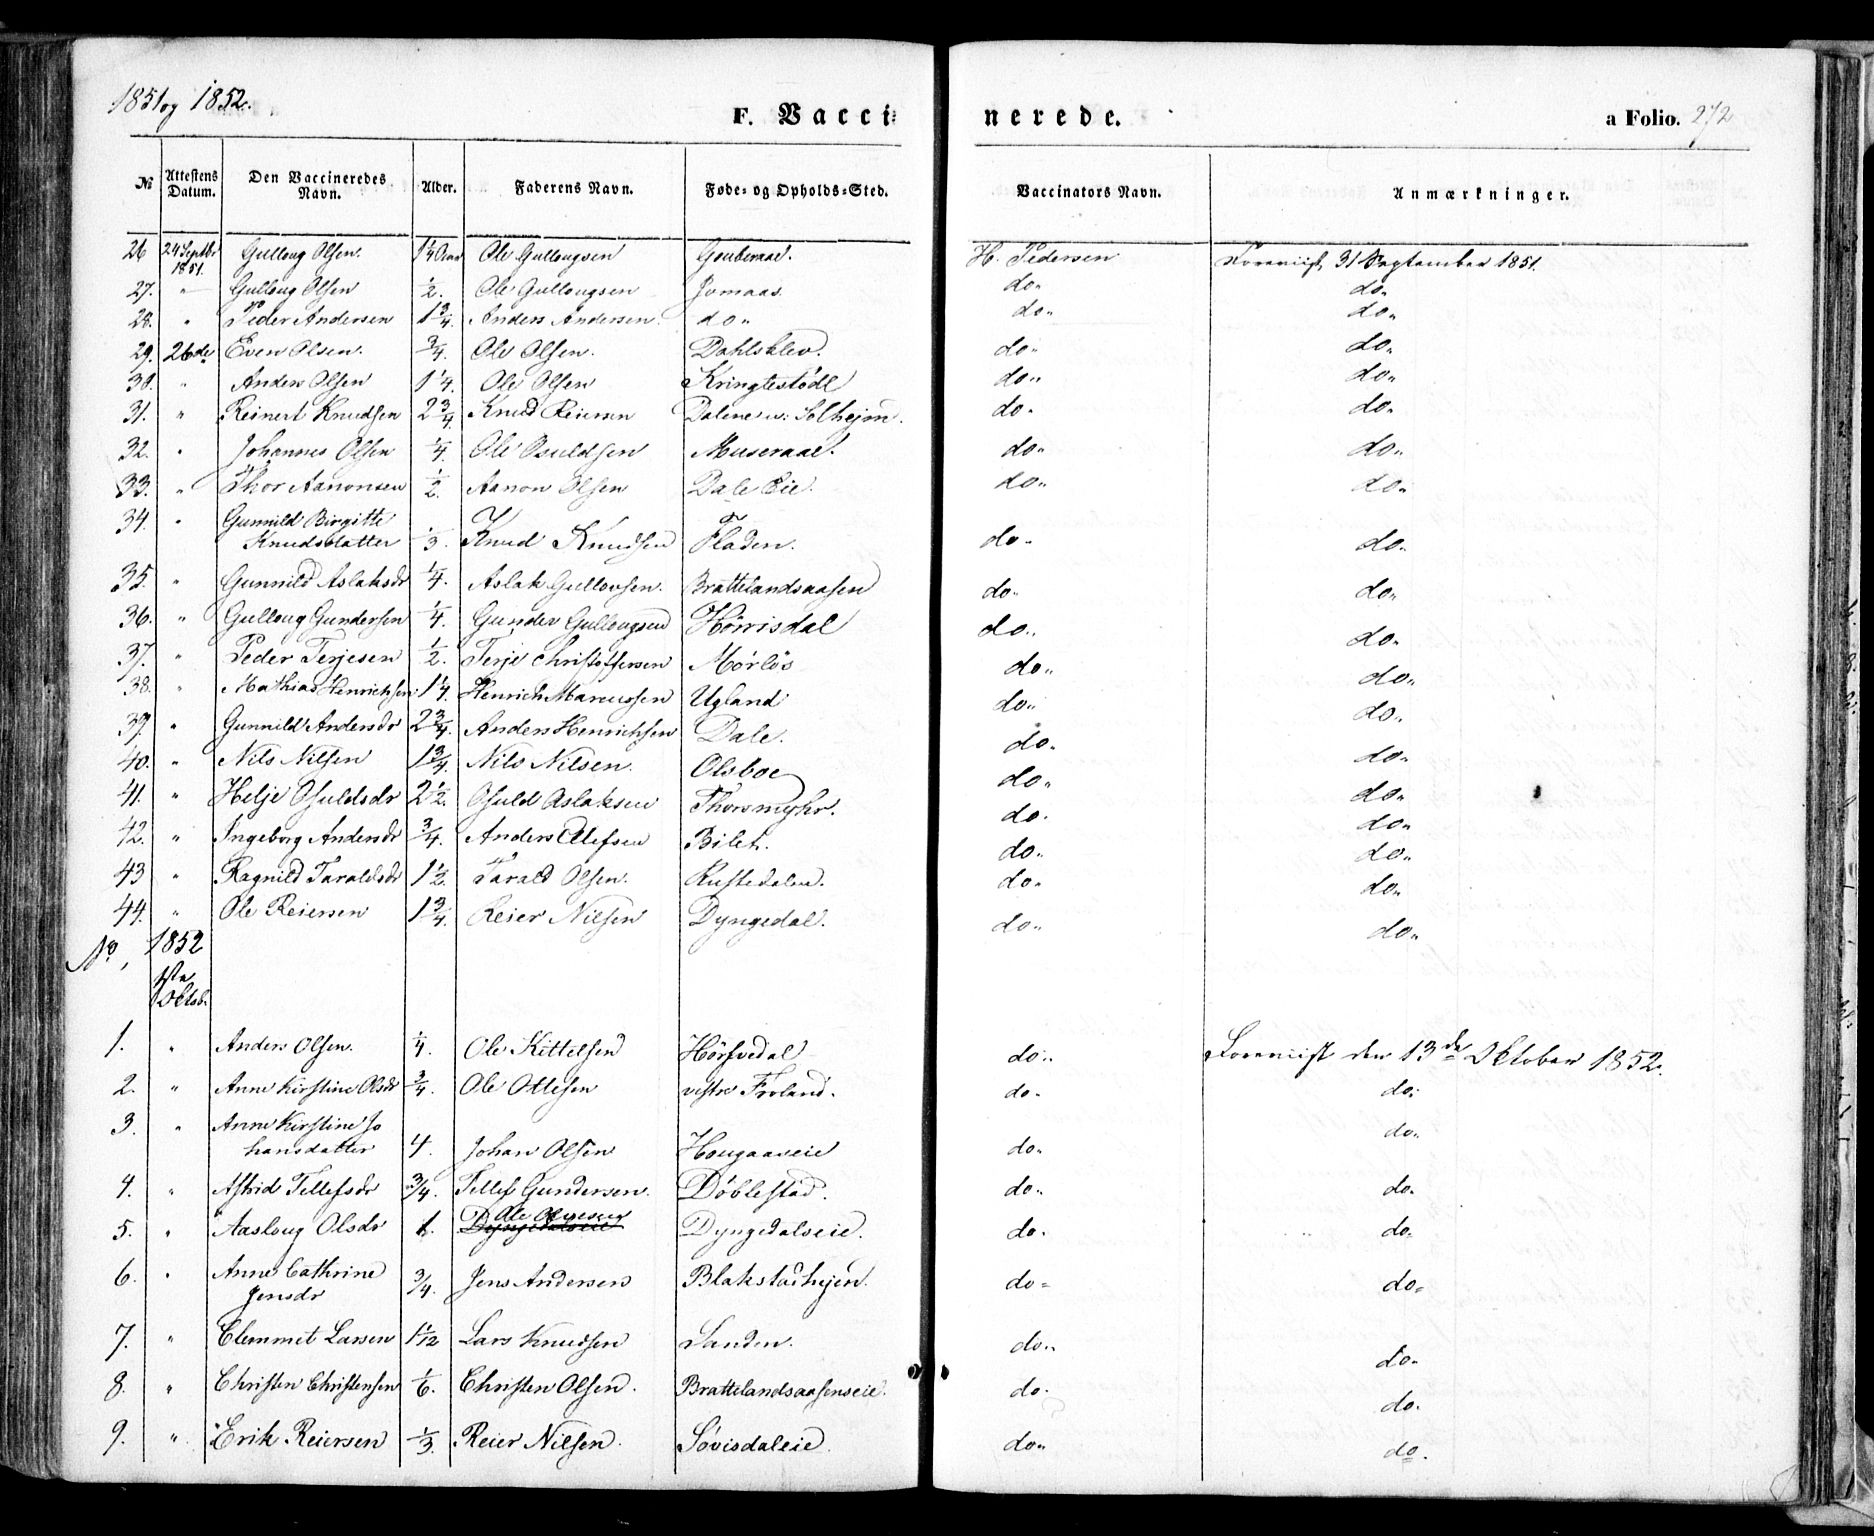 1851 og 1852.
F. Vaccinerede. a Folio. 272
No Attestens Datum. Den Vaccineredes Navn. Alder. Faderens Navn. Føde- og Opholds-Sted. Vaccinators Navn. Anmærkninger.
26 24 Septbr 1851. Gulloug Olsen. 1 1/4 Aar Ole Gullougsen H. Pedersen Foreviist 31 September 1851.
27. " Gulloug Olsen 1/2. Ole Gullougsen Jomaas do" do"
28. " Peder Andersen 1 3/4. Anders Andersen do" do" do"
29. 26de Even Olsen. 3/4. Ole Olsen. Dahlsklev. do" do"
30. " Anders Olsen 1 1/4. Ole Olsen Kringlestödl do" do"
31. " Reinert Knudsen 2 3/4. Knud Reiersen Dalene u: Solhejm. do" do"
32. " Johannes Olsen 1/4. Ole Osuldsen Museraae. do" do"
33. " Thor Aanonsen 1/2. Aanon Olsen Dale Eie. do" do"
34. " Gunnild Birgitte
Knudsdatter 1/3. Knud Knudsen Fladen. do" do"
35. " Gunnild Aslaksdr 1/4. Aslak Gullovsen. Brattelandsaasen do" do"
36. " Gulloug Gundersen 1/4. Gunder Gullougsen Hörrisdal do" do"
37. " Peder Terjesen 1/2. Terje Christoffersen Mörlös do" do"
38. " Mathias Henrichsen 1 1/4. Henrich Marcussen Ugland do" do"
39. " Gunnild Andersdr 2 3/4. Anders Henrichsen Dale. do" do"
40. " Nils Nilsen 1 3/4. Nils Nilsen. Olsboe do" do"
41. " Helje Osuldsdr 2 1/2. Osuld Aslaksen Thorsmyhr. do" do"
42. " Ingeborg Andersdr 3/4. Anders Ellefsen Bilet. do" do"
43 " Ragnild Taraldsdr 1 1/2. Tarald Olsen. Rustedalen. do" do"
44. " Ole Reiersen 1 3/4. Reier Nilsen Dyngedal. do" do"
No, 1852
Oktob.
1. " Anders Olsen. 1/4. Ole Kittelsen Hörsvedal do" Foreviist den 13de Oktober 1852.
2. " Anne Kirstine Olsdr 3/4. Ole Ottesen vestre Froland. do" do"
3. " Anne Kirstine Jo
hansdatter 4. Johan Olsen Hougaaseie do" do"
4. " Astrid Tellefsdr 3/4. Tellef Gundersen. Döblestad. do" do"
5. " Aasloug Olsdr 1. Dyngedalseie Dyngedalseie. do" do"
6. " Anne Cathrine
Jensdr 3/4. Jens Andersen Blakstadhejen. do" do"
7. " Clemmet Larsen 1 1/12 Lars Knudsen Sanden. do" do"
8. " Christen Christensen 1/6. Christen Olsen. Brattelandsaasenseie. do" do"
9. " Erik Reiersen 1/3. Reier Nilsen. Sövisdaleie. do" do.